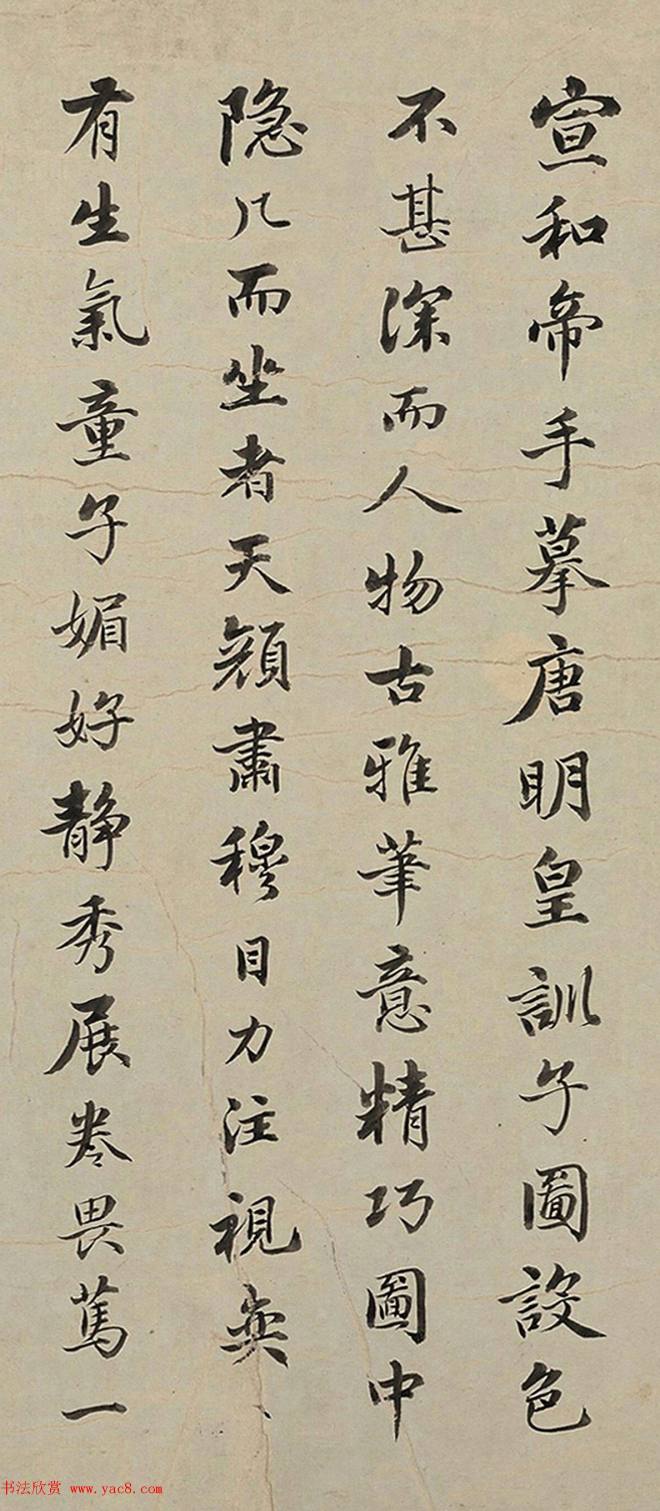 宣和帝手摹唐明皇訓子圖設色
不甚深而人物古雅筆意精巧圖中
隐几而坐者天顔肅穆目力注視奕〻
有生氣童子媚好静秀展卷畏蔿一
书法欣赏 www.yac8.com